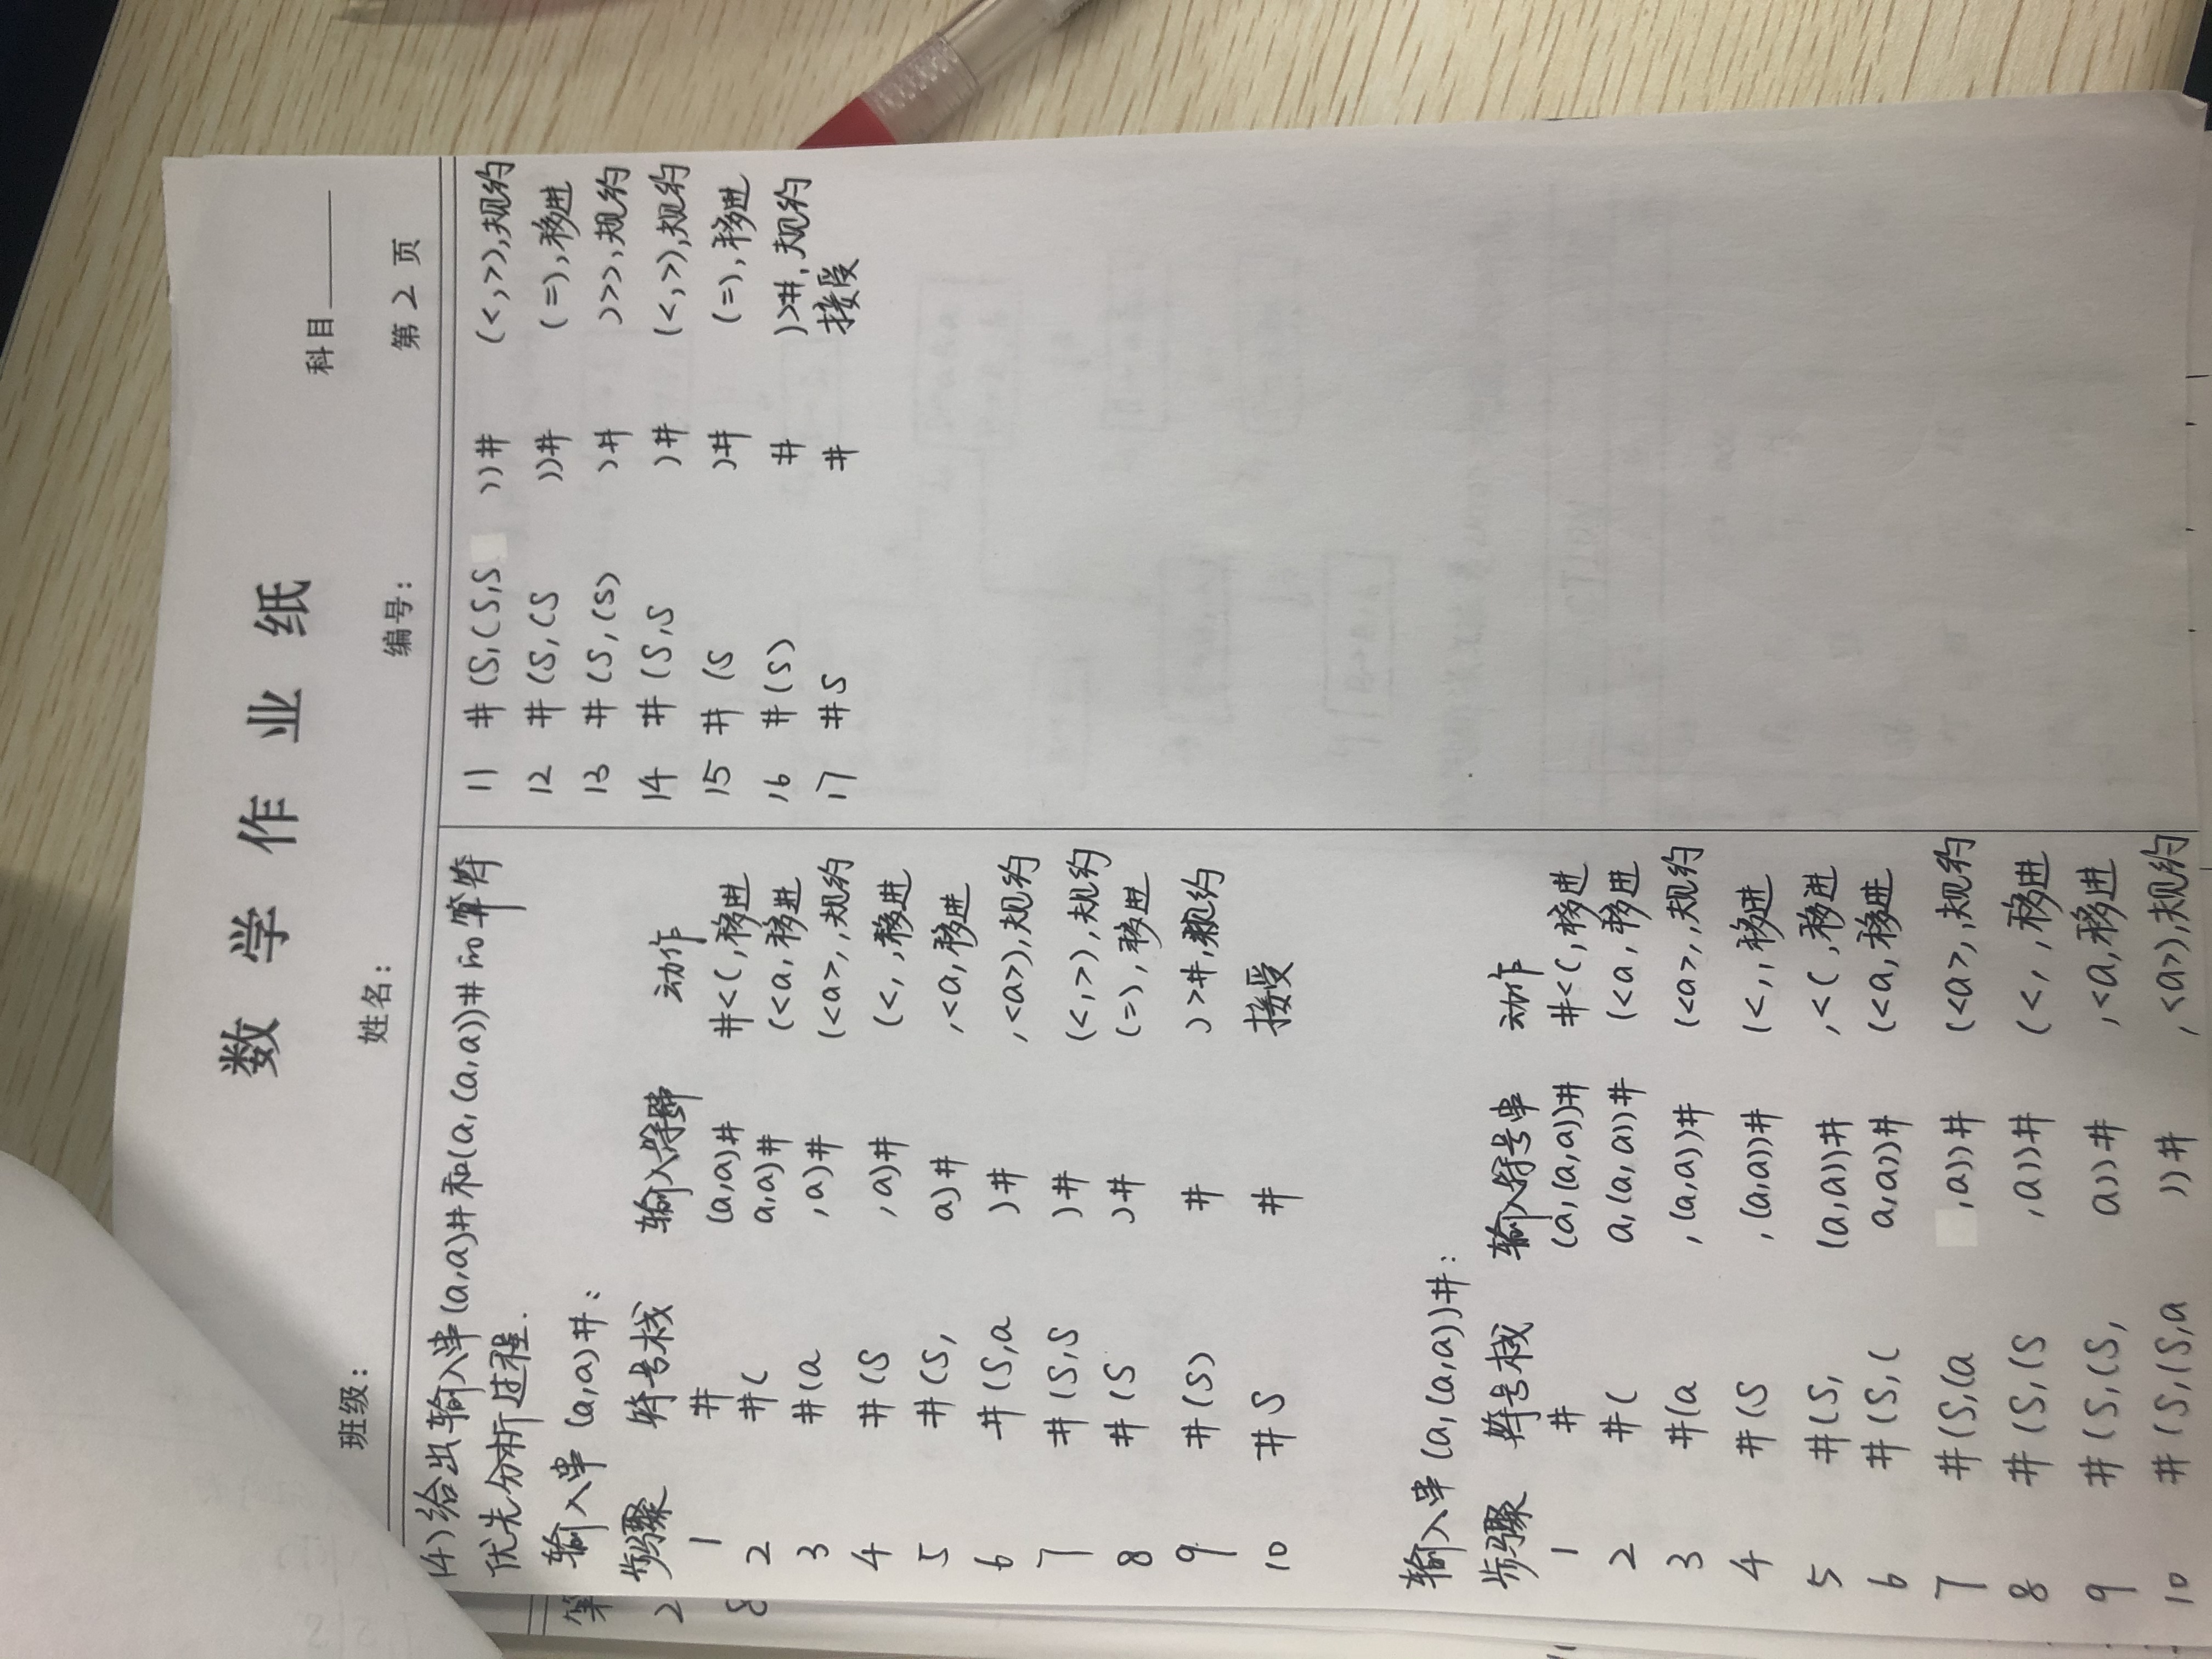 数学作业纸
科目
班级： 姓名： 编号： 第 2 页
(4) 给出输入串(a,a)#和(a,(a,a))#的算符
优先分析过程.
输入串 (a,a)#：
步骤 符号栈 输入符号串 动作
1 # (a,a)# #<(,移进
2 #( a,a)# (<a,移进
3 #(a ,a)# (<a>,,规约
4 #(S ,a)# (<,,移进
5 #(S, a)# ,<a,移进
6 #(S,a )# ,<a>),规约
7 #(S,S )# (<,>),规约
8 #(S )# (=),移进
9 #(S) # )>#,规约
10 #S # 接受
输入串(a,(a,a))#：
步骤 符号栈 输入符号串 动作
1 # (a,(a,a))# #<(,移进
2 #( a,(a,a))# (<a,移进
3 #(a ,(a,a))# (<a>,,规约
4 #(S ,(a,a))# (<,,移进
5 #(S, (a,a))# ,<(,移进
6 #(S,( a,a))# (<a,移进
7 #(S,(a ,a))# (<a>,,规约
8 #(S,(S ,a))# (<,,移进
9 #(S,(S, a))# ,<a,移进
10 #(S,(S,a ))# ,<a>),规约
11 #(S,(S,S ))# (<,>),规约
12 #(S,(S ))# (=),移进
13 #(S,(S) )# )>),规约
14 #(S,S )# (<,>),规约
15 #(S )# (=),移进
16 #(S) # )>#,规约
17 #S # 接受
第
2
8